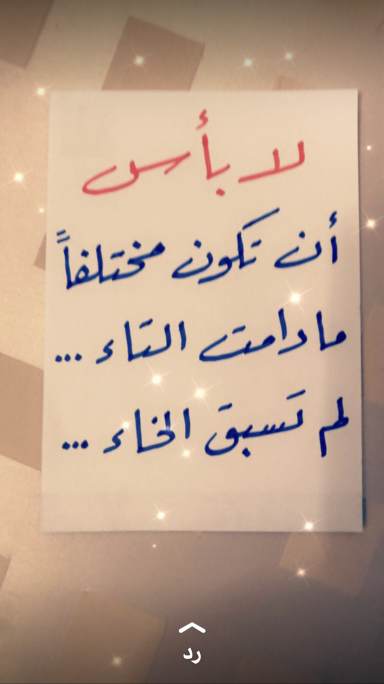 لا بأس
أن تكون مختلفاً
ما دامت التاء ...
لم تَسبق الخاء ...
رد